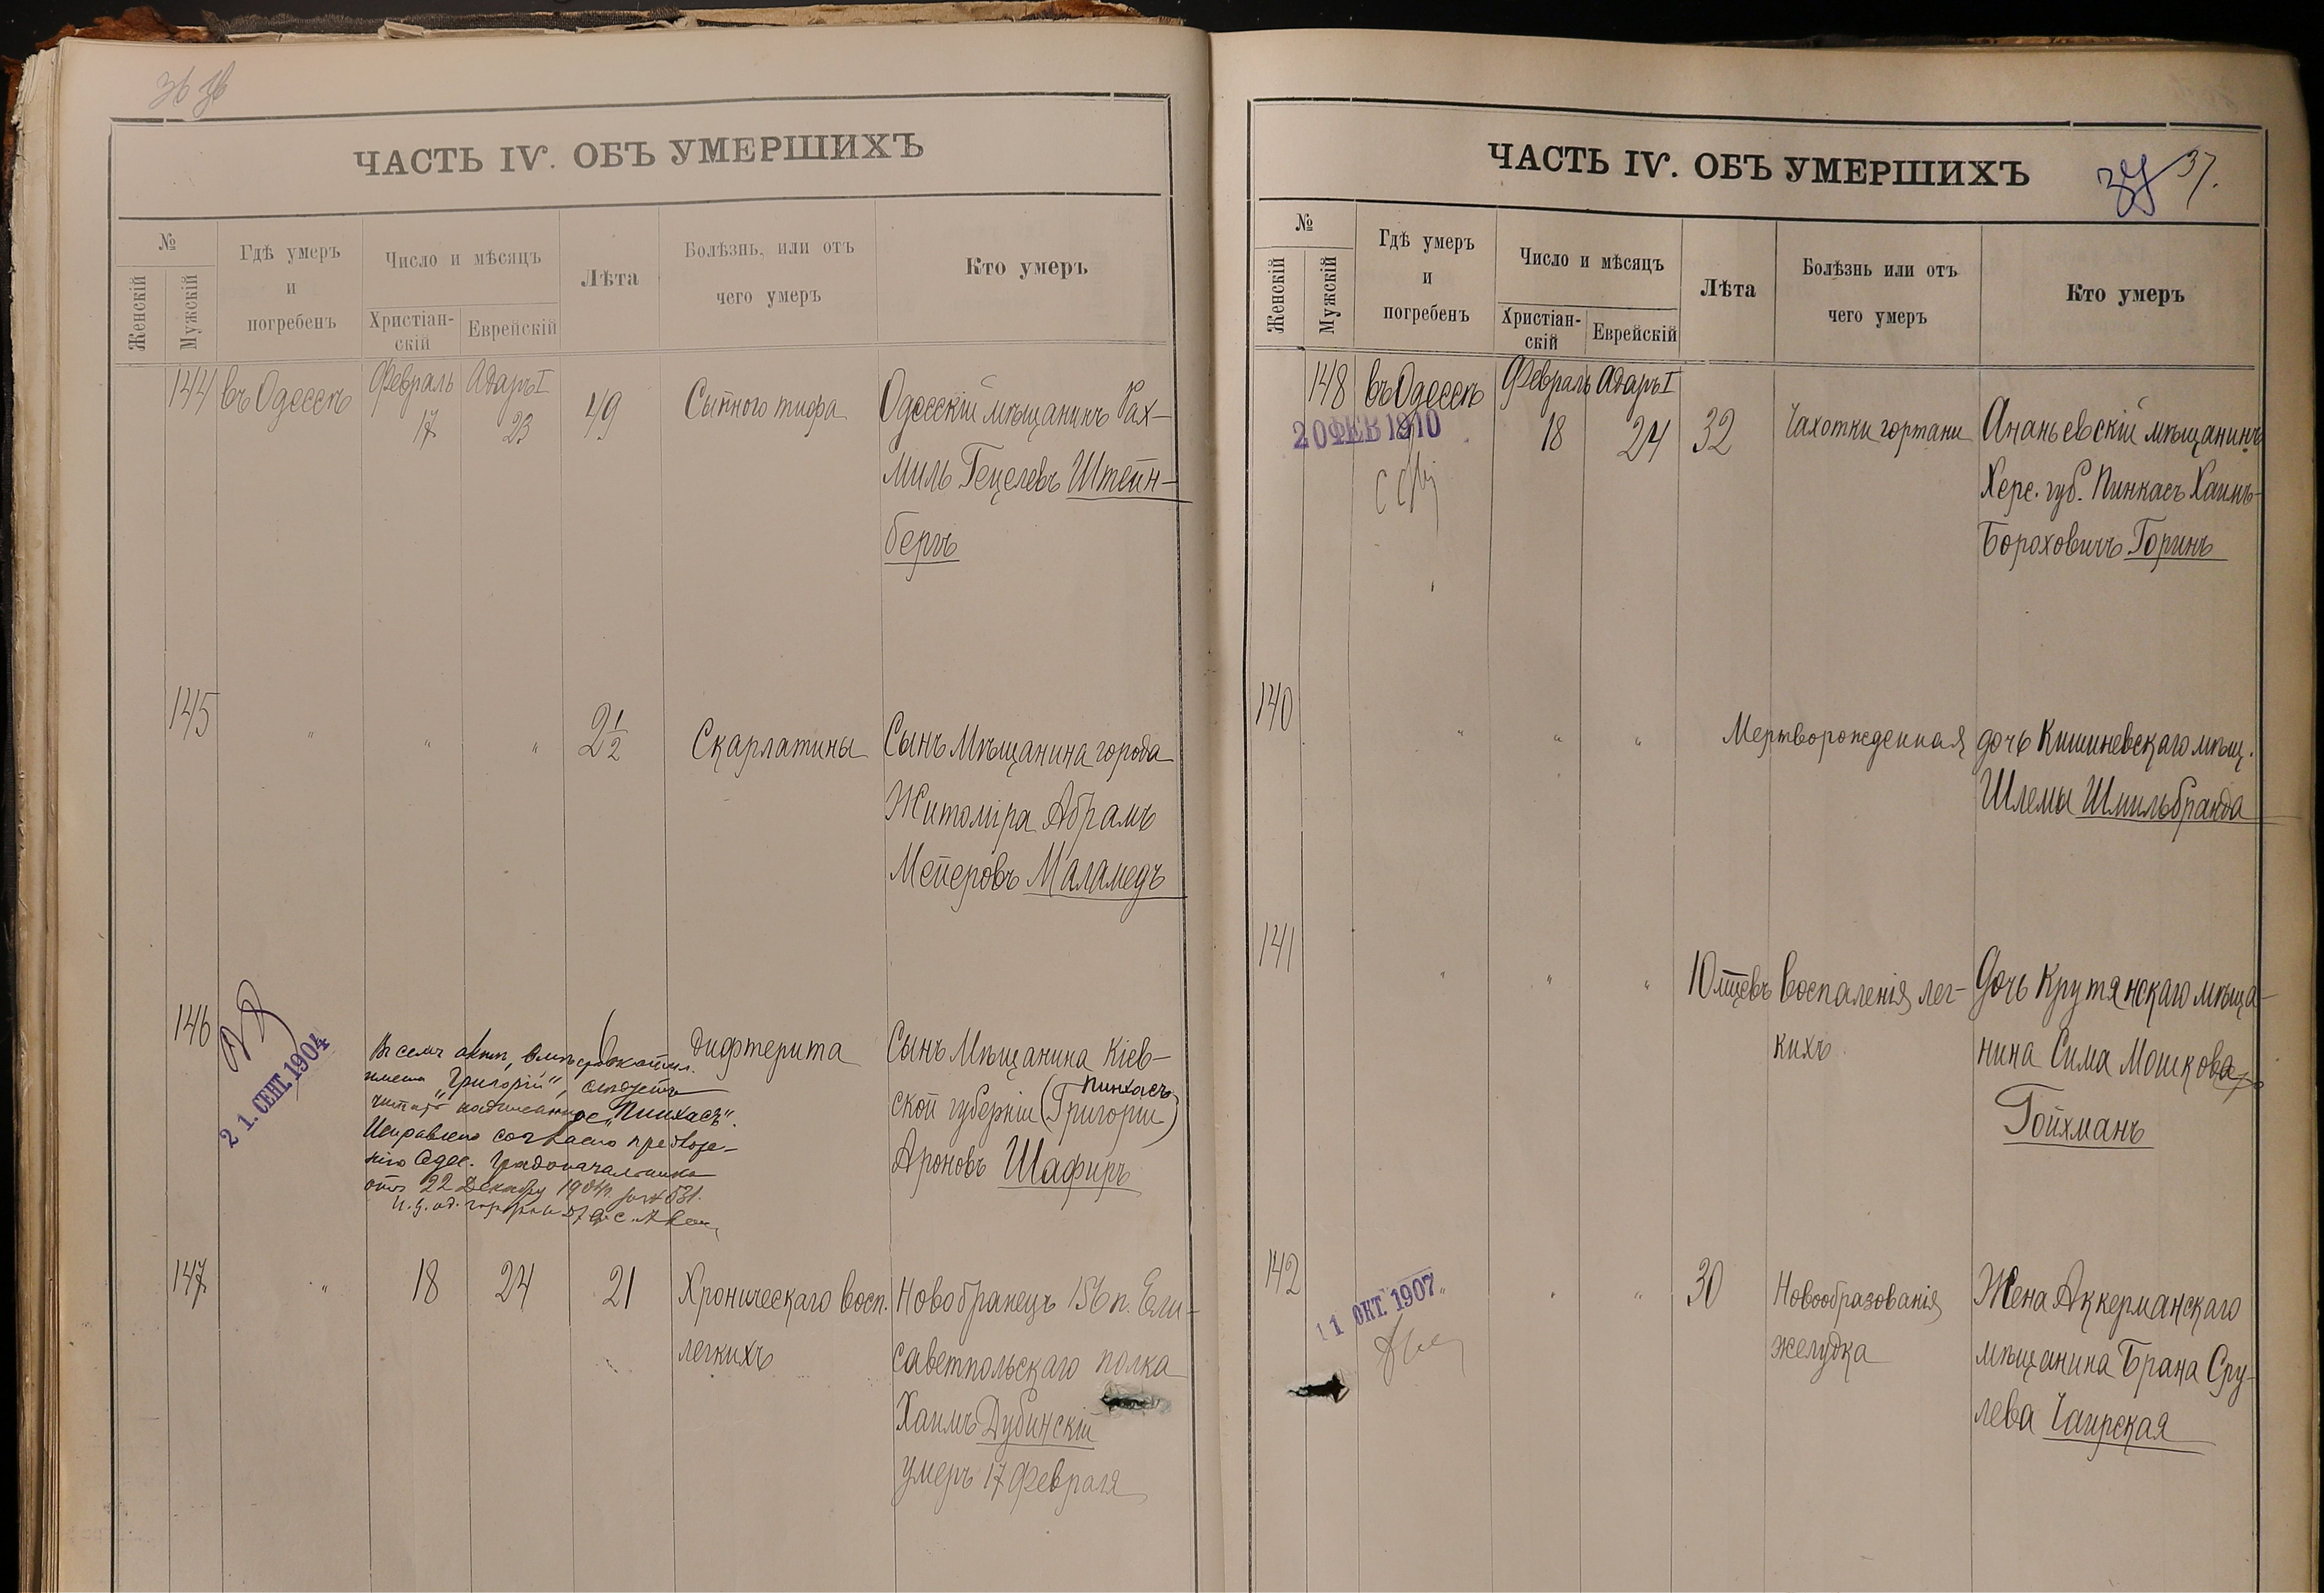 36 36
ЧАСТЬ IV. ОБЪ УМЕРШИХЪ
№
Женскій
Мужскій
Гдѣ умеръ
и
погребенъ
Число и мѣсяцъ
Христіан-
скій
Еврейскій
Лѣта
Болѣзнь, или отъ
чего умеръ
Кто умеръ
144 въ Одессѣ Февраль 17 Адаръ I 23 49 Сыпного тифа Одесскій мѣщанинъ Рах-
миль Гецелевъ Штейн-
бергъ
145 " " " 2 1/2 Скарлатины Сынъ мѣщанина города
Житоміра Абрамъ
Мейеровъ Маламедъ
146 6 Дифтерита Сынъ мѣщанина Кіев-
ской губерніи (Григорій) Пинхасъ
Ароновъ Шафиръ
21. СЕНТ. 1904
Въ семъ актѣ, вмѣсто
имени "Григорій", слѣдуетъ
читать надписанное "Пинхасъ".
Исправлено согласно предложе-
нію Одес. Градоначальника
отъ 22 Декабря
147 " 18 24 21 Хроническаго восп. Новобранецъ 156 п. Ели-
легкихъ саветпольскаго полка
Хаимъ Дубинскій
умеръ 17 Февраля
ЧАСТЬ IV. ОБЪ УМЕРШИХЪ
37 37.
№
Женскій
Мужскій
Гдѣ умеръ
и
погребенъ
Число и мѣсяцъ
Христіан-
скій
Еврейскій
Лѣта
Болѣзнь или отъ
чего умеръ
Кто умеръ
148 въ Одессѣ Февраль 18 Адаръ I 24 32 Чахотки гортани Ананьевскій мѣщанинъ
Херс. губ. Пинкасъ Хаимъ-
Бороховичъ Горинъ
20 ФЕВ 1910
140 " " " Мертворожденная дочь Кишиневскаго мѣщ.
Шлемы Шмильбранда
141 " " " 10 мцевъ Воспаленія лег- Дочь Крутянскаго мѣща-
кихъ нина Сима Мошкова
Гойхманъ
142 " " " 30 Новообразованія Жена Аккерманскаго
желудка мѣщанина Брана Сру-
лева Чаирская
11 ОКТ. 1907